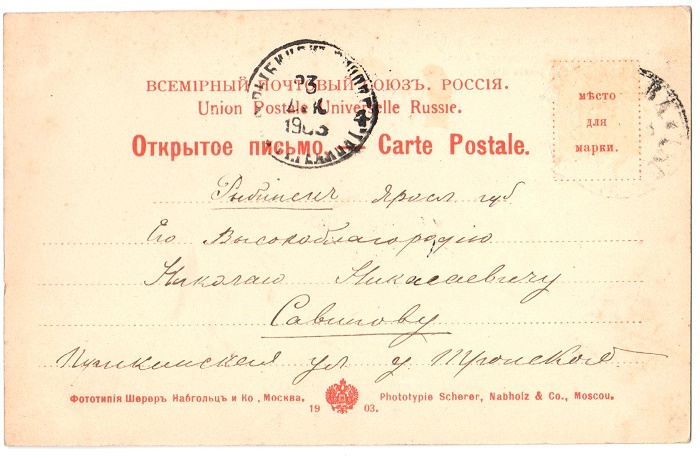 ВСЕМІРНЫЙ ПОЧТОВЫЙ СОЮЗЪ. РОССІЯ.
Union Postale Universelle Russie.
Открытое письмо. — Carte Postale.
мѣсто
для
марки.
23
190
4
Рыбинскъ Яросл губ
Его Высокоблагородию
Николаю Николаевичу
Савинову
Пушкинская ул у
Фототипія Шереръ Набгольцъ и Ко, Москва.
19 03.
Phototypie Scherer, Nabholz & Co., Moscou.